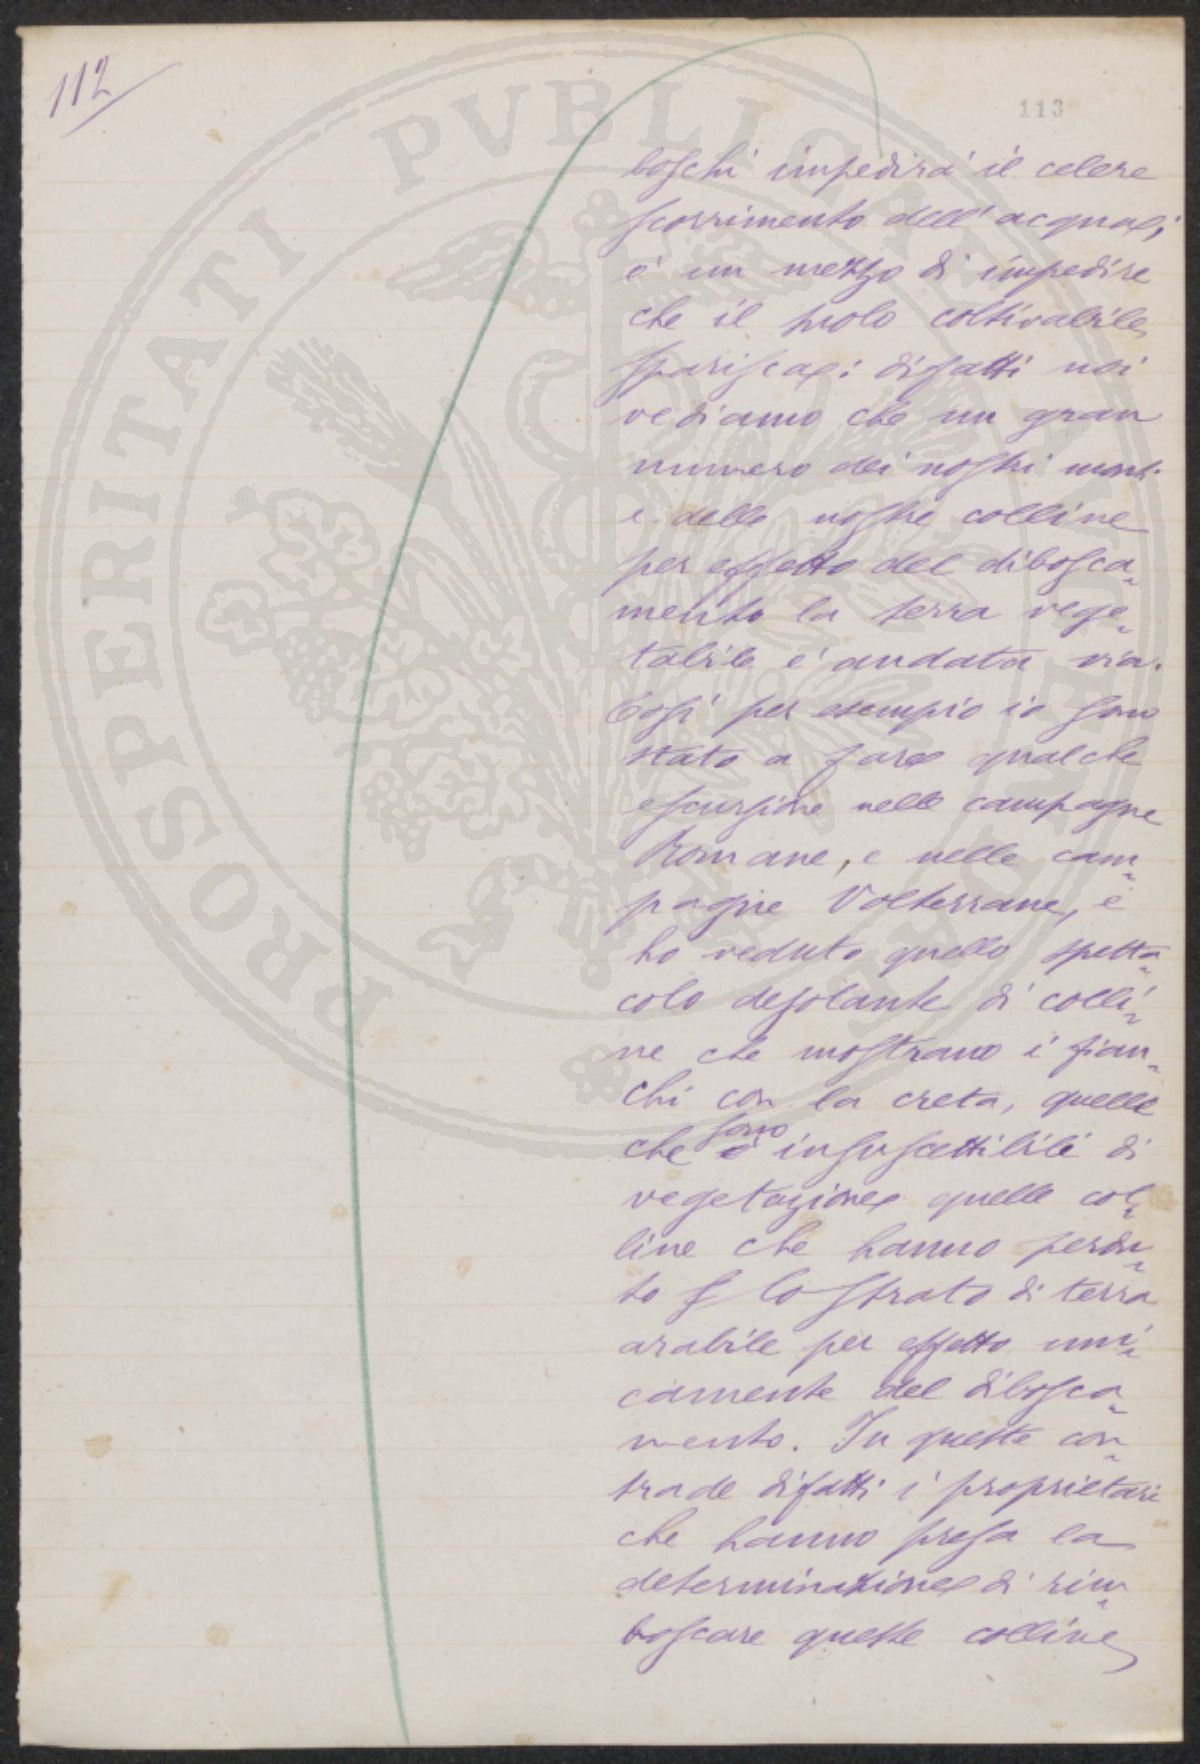 112
113
boschi impedirà il celere
scorrimento dell'acqua;
è un mezzo di impedire
che il suolo coltivabile
sparisca: difatti noi
vediamo che un gran
numero dei nostri monti
e delle nostre colline
per effetto del disbosca-
mento la terra vege-
tabile è andata via.
Così per esempio io sono
stato a fare qualche
escursione nelle campagne
Romane, e nelle cam-
pagne Volterrane, e
ho veduto quello spetta-
colo desolante di colli-
ne che mostrano i fian-
chi con la creta, quelle
che sono insuscettibili di
vegetazione quelle col-
line che hanno perdu-
to lo strato di terra
arabile per effetto uni-
camente del dibosca-
mento. In queste con-
trade difatti i proprietari
che hanno presa la
determinazione di rim-
boscare queste colline
PROSPERITATI PVBLICAE